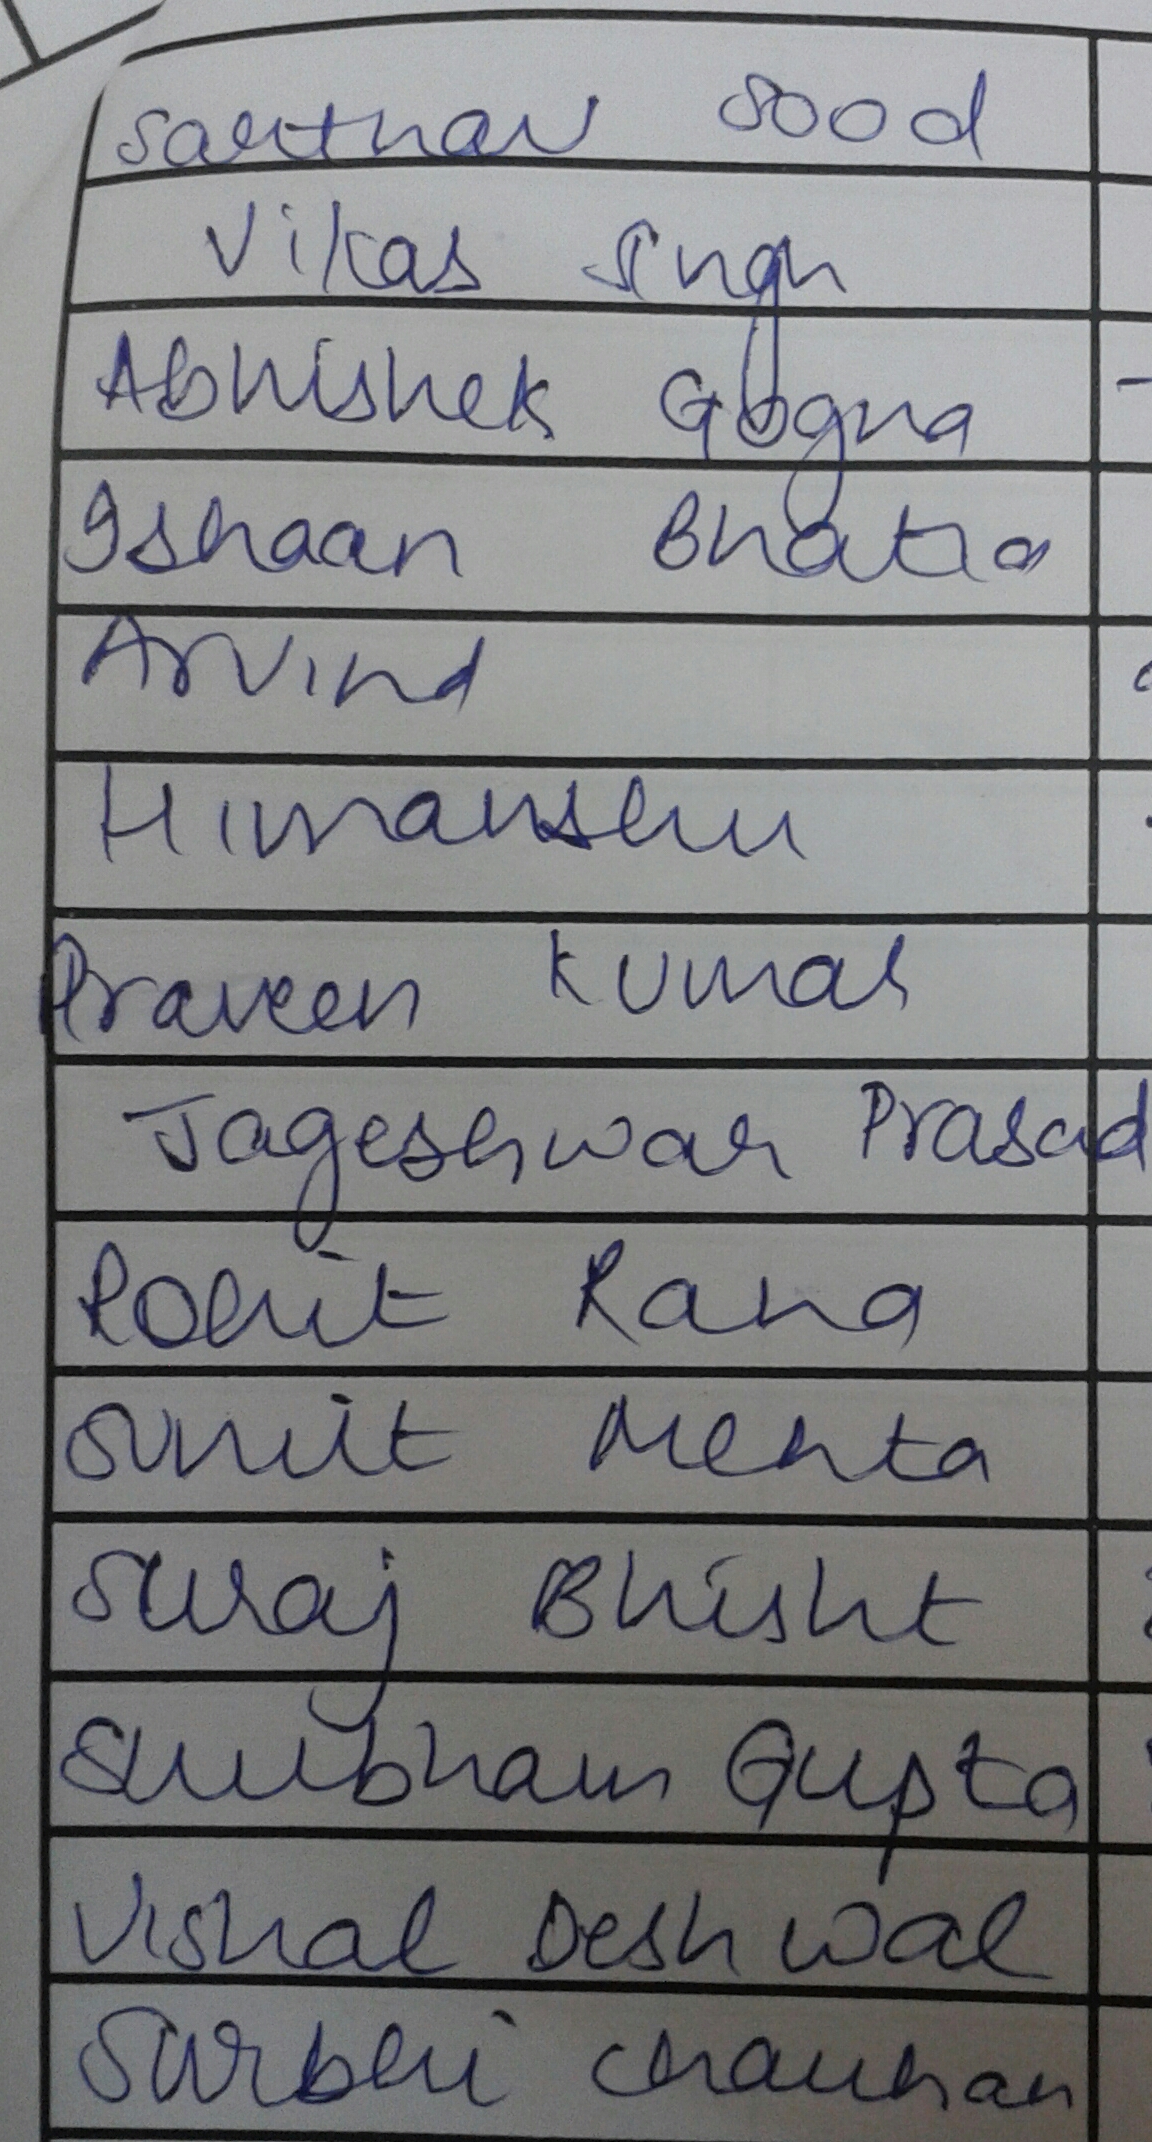 Sarthak Sood
Vikas Singh
Abhishek Gogna
Ishaan Bhatia
Arvind
Himanshu
Praveen Kumar
Jageshwar Prasad
Rohit Rana
Sumit Mehta
Suraj Bhisht
Shubham Gupta
Vishal Deshwal
Surbhi Chauhan